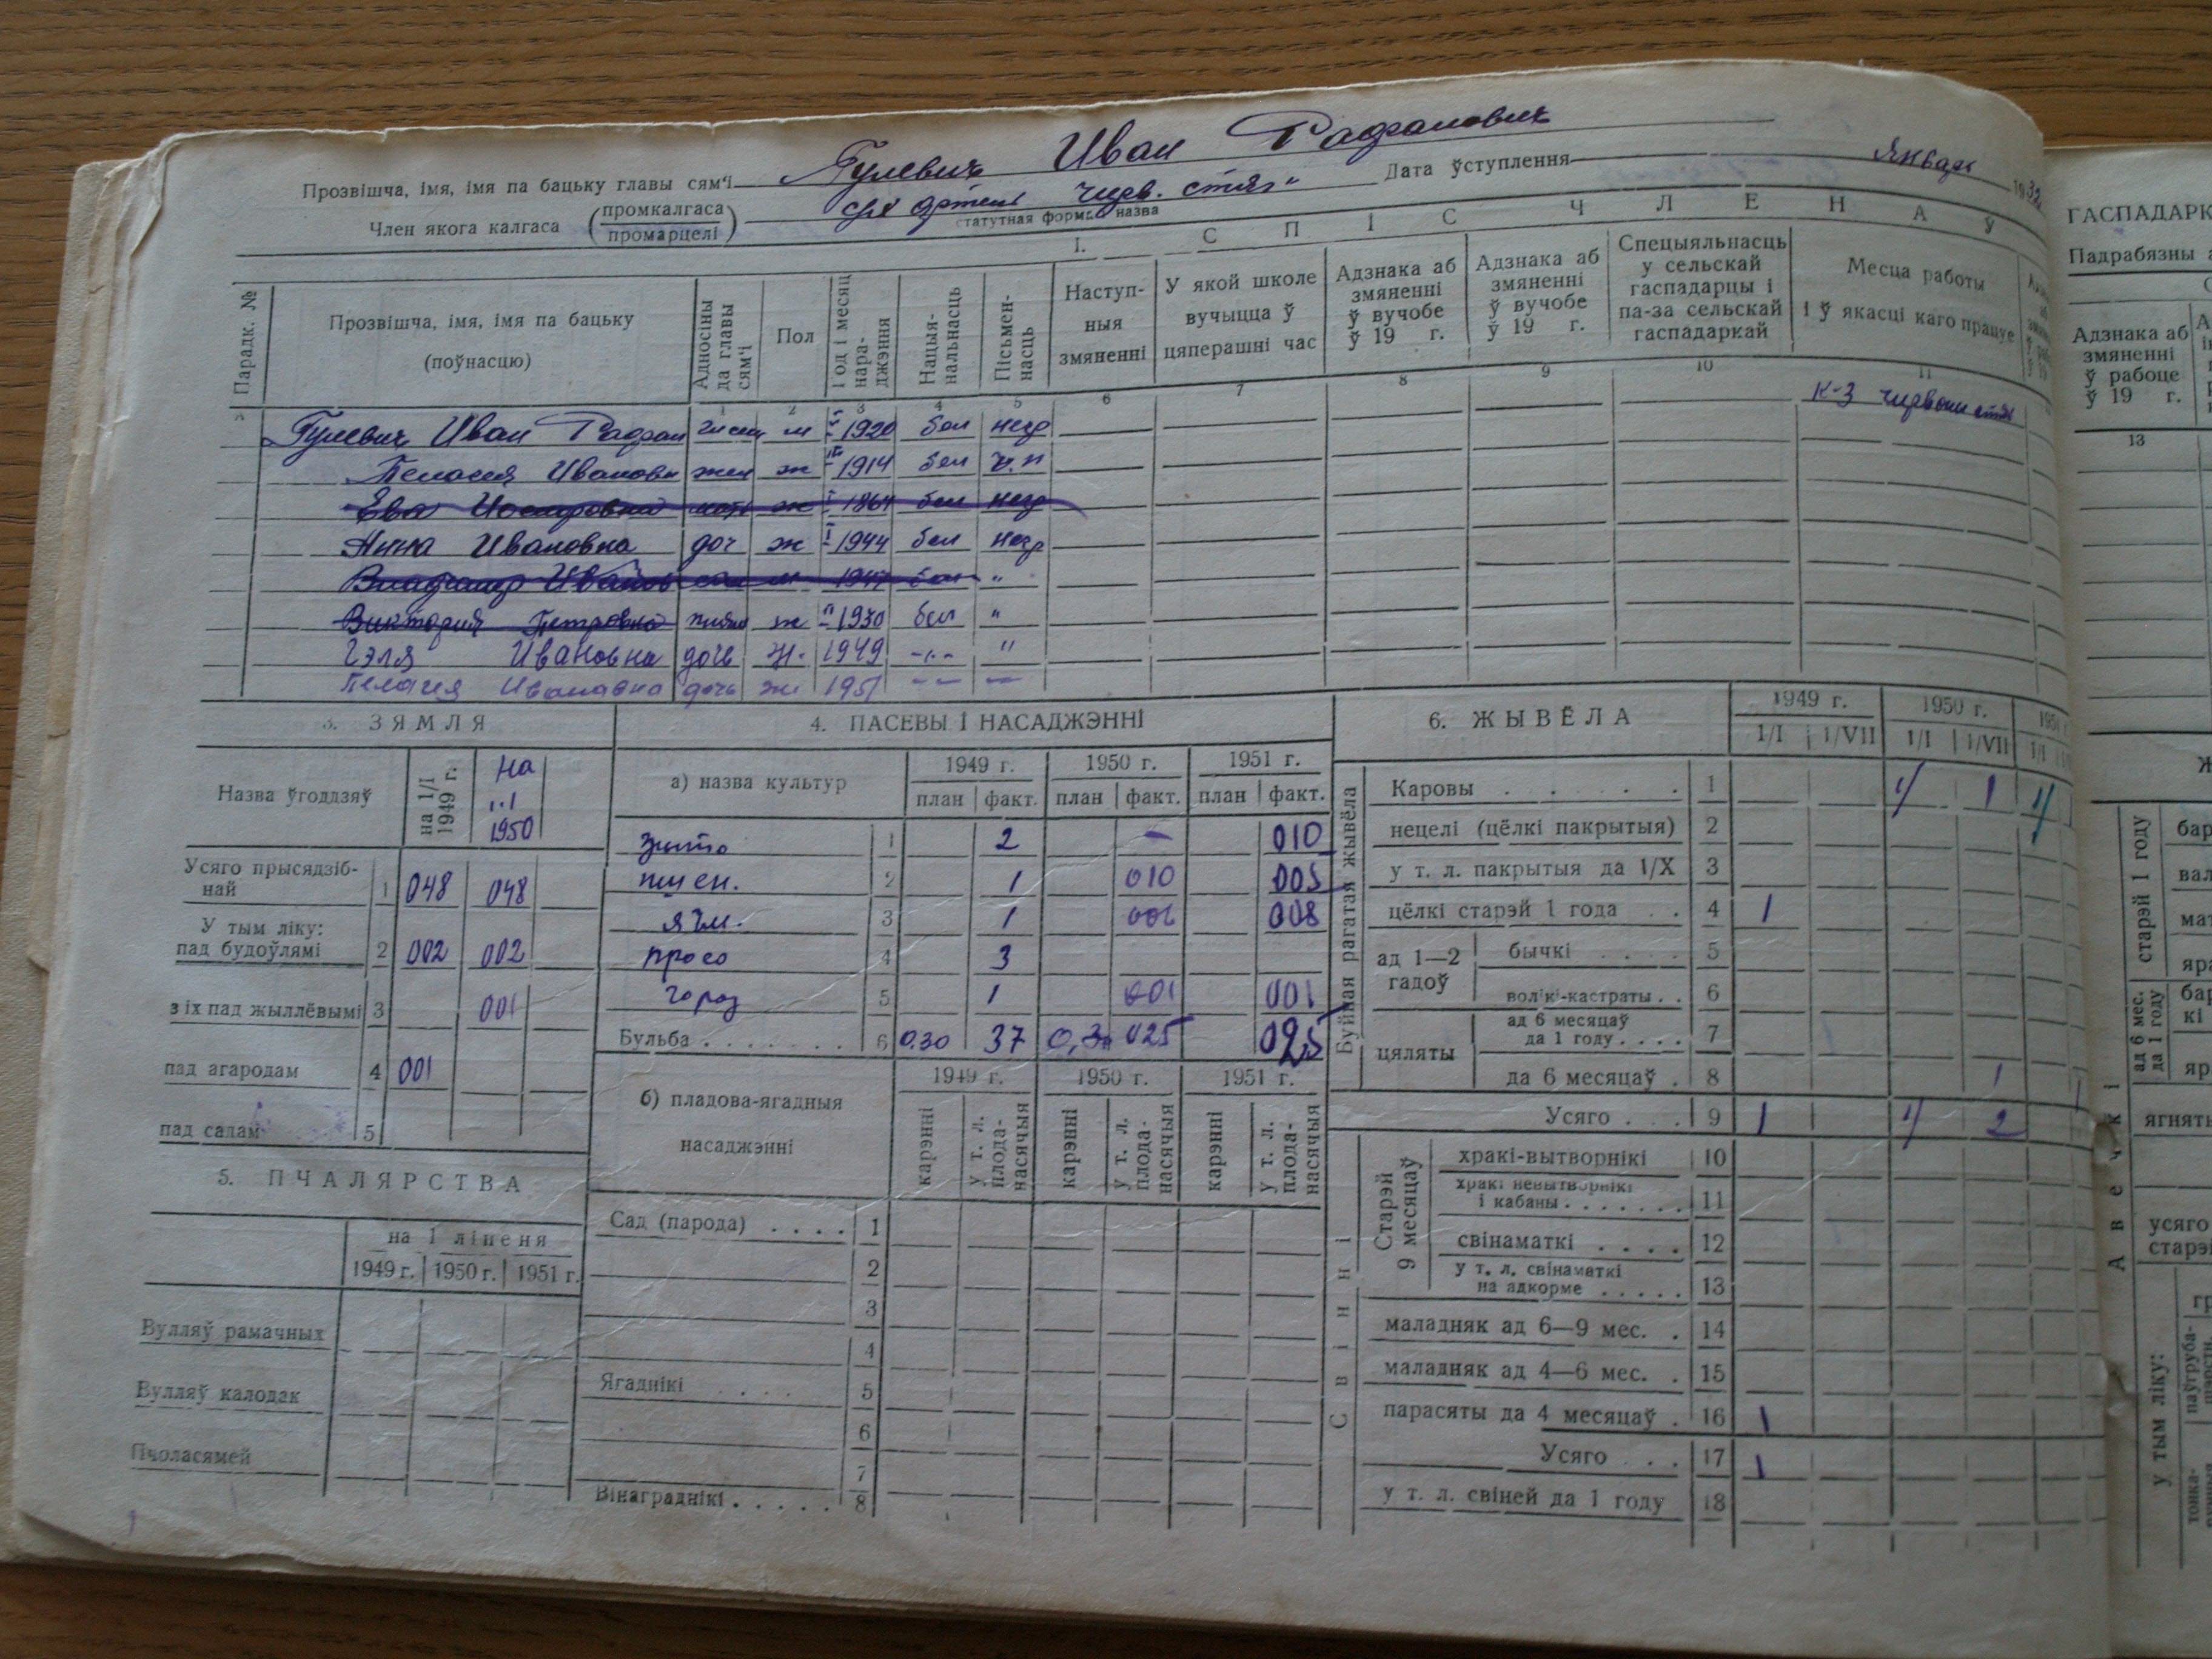 Прозвішча, імя, імя па бацьку главы сям'і Гулевич Иван
Дата ўступлення Январь 1932
Член якога калгаса (промкалгаса / промарцелі) с/х артель "Черв. стяг"
статутная форма і назва
1. С П І С Ч Л Е Н А Ў
Парадк. № Прозвішча, імя, імя па бацьку (поўнасцю) Адносіны да главы сям'і Пол Год і месяц нараджэння Нацыянальнасць Пісьменнасць Наступныя змяненні У якой школе вучыцца ў цяперашні час Адзнака аб змяненні ў вучобе ў 19 г. Адзнака аб змяненні ў вучобе ў 19 г. Спецыяльнасць у сельскай гаспадарцы і па-за сельскай гаспадаркай Месца работы і ў якасці каго працуе
1 2 3 4 5 6 7 8 9 10 11
Гулевич Иван м 1920 бел негр к-з
Пелагея Ивановн жен ж 1914 бел
Ева мать ж 1864 бел негр
Анна Ивановна доч ж 1944 бел негр
Владимир Иванов сын м 1947 бел "
Виктория Петровна ж 1930 бел "
Гэля Ивановна дочь ж. 1949 -"- "
Пелагея Ивановна дочь ж 1951 — —
3. ЗЯМЛЯ
Назва ўгоддзяў на 1/I 1949 г. на 1.1 1950
Усяго прысядзібнай 1 048 048
У тым ліку: пад будоўлямі 2 002 002
з іх пад жыллёвымі 3 001
пад агародам 4 001
пад садам 5
5. ПЧАЛЯРСТВА
на 1 ліпеня
1949 г. 1950 г. 1951 г.
Вулляў рамачных
Вулляў калодак
Пчоласямей
4. ПАСЕВЫ І НАСАДЖЭННІ
а) назва культур 1949 г. 1950 г. 1951 г.
план факт. план факт. план факт.
жито 1 2 — 010
пшен. 2 1 010 005
ячм. 3 1 008
просо 4 3
горох 5 1 001 001
Бульба 6 0.30 37 025 025
б) пладова-ягадныя насаджэнні 1949 г. 1950 г. 1951 г.
карэнні у т. л. плоданасячыя карэнні у т. л. плоданасячыя карэнні у т. л. плоданасячыя
Сад (парода) 1
2
3
4
Ягаднікі 5
6
7
Вінаграднікі 8
6. ЖЫВЁЛА 1949 г. 1950 г. 1951 г.
1/I 1/VII 1/I 1/VII 1/I
Буйная рагатая жывёла
Каровы 1 1
нецелі (цёлкі пакрытыя) 2
у т. л. пакрытыя да 1/X 3
цёлкі старэй 1 года 4 1
ад 1—2 гадоў бычкі 5
волікі-кастраты 6
цяляты ад 6 месяцаў да 1 году 7
да 6 месяцаў 8 1 1
Усяго 9 1 2
Свінні
Старэй 9 месяцаў хракі-вытворнікі 10
хракі невытворнікі і кабаны 11
свінаматкі 12
у т. л. свінаматкі на адкорме 13
маладняк ад 6—9 мес. 14
маладняк ад 4—6 мес. 15
парасяты да 4 месяцаў 16 1
Усяго 17 1
у т. л. свіней да 1 году 18
ГАСПАДАРК
Падрабязны
Адзнака аб змяненні ў рабоце ў 19 г.
13
Авечкі
старэй 1 году
ад 6 мес. да 1 году
усяго
у тым ліку: